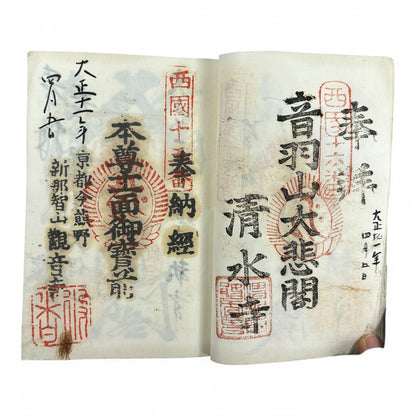 西國十六番
奉拜
大正十一年
四月五日
音羽山大悲閣
清水寺
西國十五番
奉納經
本尊十一面御寶前
大正十一年
四月五日
京都今熊野
新那智山觀音寺